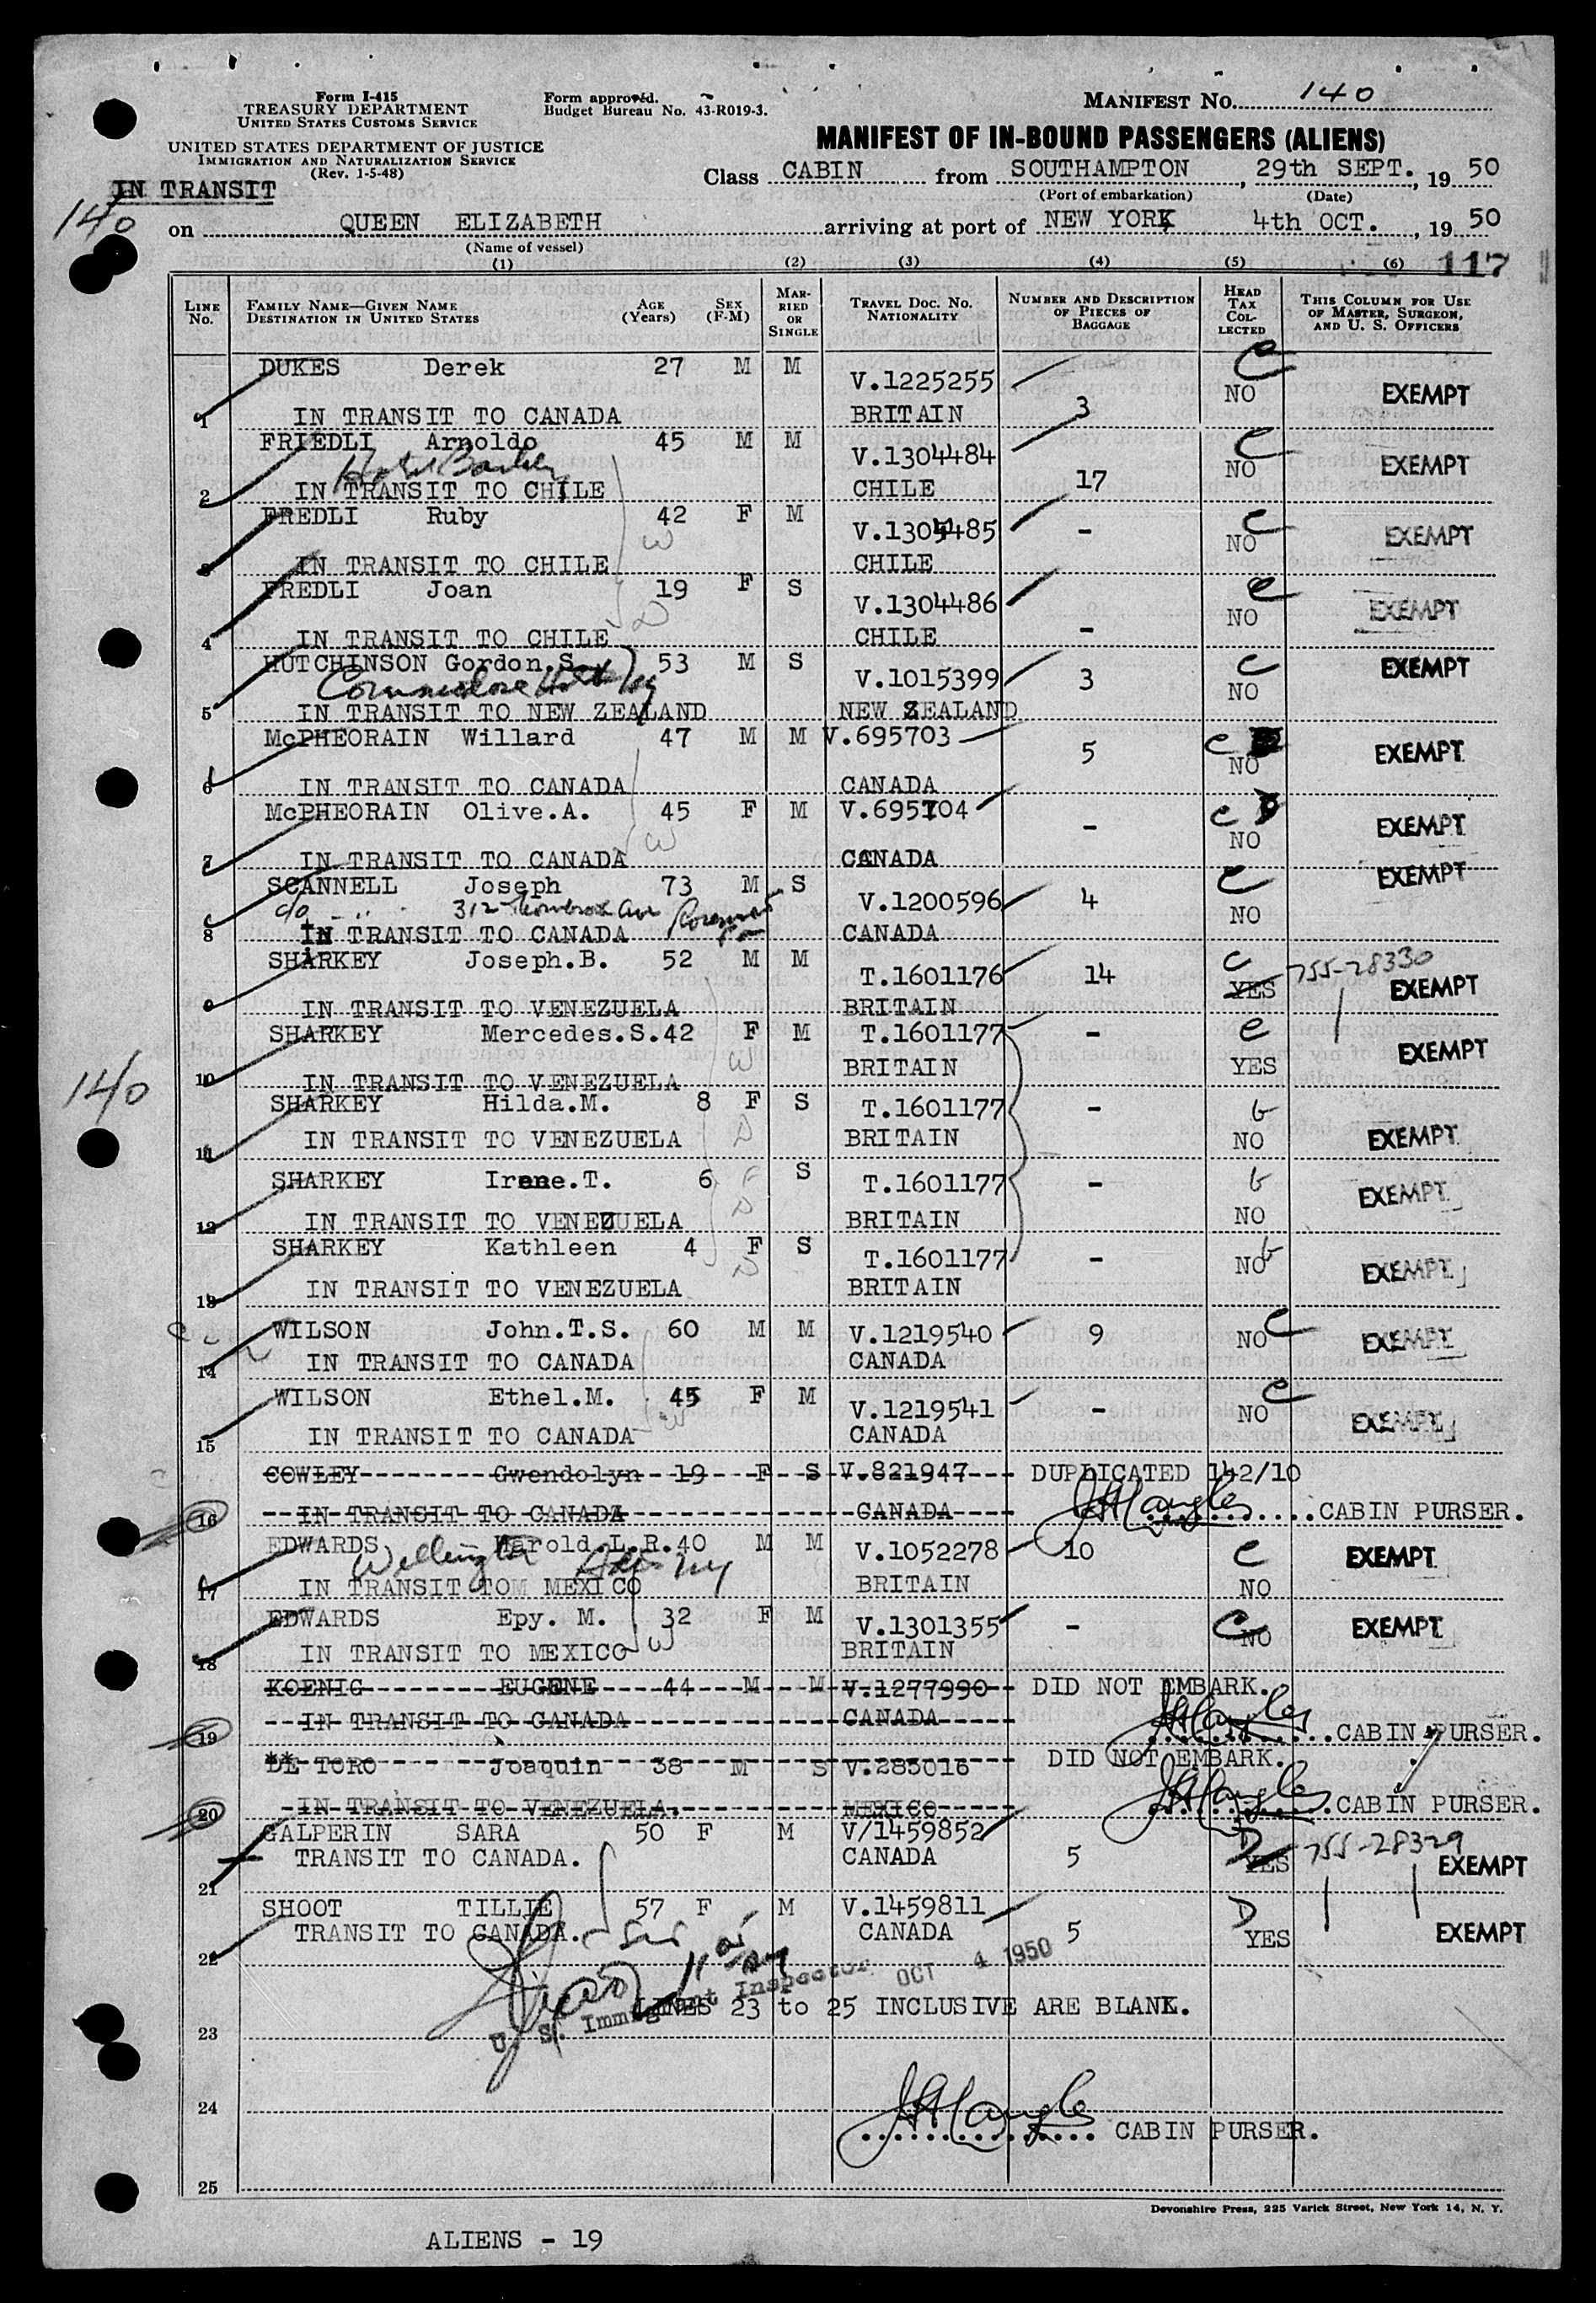 Form I-415
TREASURY DEPARTMENT
UNITED STATES CUSTOMS SERVICE
UNITED STATES DEPARTMENT OF JUSTICE
IMMIGRATION AND NATURALIZATION SERVICE
(Rev. 1-5-48)
Form approved.
Budget Bureau No. 43-R019-3.
MANIFEST No. 140
MANIFEST OF IN-BOUND PASSENGERS (ALIENS)
IN TRANSIT
140
Class CABIN from SOUTHAMPTON, 29th SEPT., 19 50
(Port of embarkation) (Date)
on QUEEN ELIZABETH arriving at port of NEW YORK 4th OCT., 19 50
(Name of vessel)
117
(1) (2) (3) (4) (5) (6)
LINE No. FAMILY NAME—GIVEN NAME DESTINATION IN UNITED STATES AGE (Years) SEX (F-M) MARRIED OR SINGLE TRAVEL DOC. NO. NATIONALITY NUMBER AND DESCRIPTION OF PIECES OF BAGGAGE HEAD TAX COLLECTED THIS COLUMN FOR USE OF MASTER, SURGEON, AND U. S. OFFICERS
DUKES Derek 27 M M V.1225255 3 C NO EXEMPT
1 IN TRANSIT TO CANADA BRITAIN
FRIEDLI Arnoldo 45 M M V.1304484 17 C NO EXEMPT
2 IN TRANSIT TO CHILE CHILE
FREDLI Ruby 42 F M V.1304485 - C NO EXEMPT
3 IN TRANSIT TO CHILE CHILE
FREDLI Joan 19 F S V.1304486 - C NO EXEMPT
4 IN TRANSIT TO CHILE CHILE
HUTCHINSON Gordon.S. 53 M S V.1015399 3 C NO EXEMPT
Commodore Hotel NY
5 IN TRANSIT TO NEW ZEALAND NEW ZEALAND
McPHEORAIN Willard 47 M M V.695703 5 C NO EXEMPT
6 IN TRANSIT TO CANADA CANADA
McPHEORAIN Olive.A. 45 F M V.695704 - C NO EXEMPT
7 IN TRANSIT TO CANADA CANADA
SCANNELL Joseph 73 M S V.1200596 4 C NO EXEMPT
c/o 312 Ave
8 IN TRANSIT TO CANADA CANADA
SHARKEY Joseph.B. 52 M M T.1601176 14 C YES 755-28330 EXEMPT
9 IN TRANSIT TO VENEZUELA BRITAIN
SHARKEY Mercedes.S. 42 F M T.1601177 - C YES EXEMPT
10 IN TRANSIT TO VENEZUELA BRITAIN
140
SHARKEY Hilda.M. 8 F S T.1601177 - NO EXEMPT
11 IN TRANSIT TO VENEZUELA BRITAIN
SHARKEY Irene.T. 6 F S T.1601177 - NO EXEMPT
12 IN TRANSIT TO VENEZUELA BRITAIN
SHARKEY Kathleen 4 F S T.1601177 - NO EXEMPT
13 IN TRANSIT TO VENEZUELA BRITAIN
WILSON John.T.S. 60 M M V.1219540 9 NO C EXEMPT
14 IN TRANSIT TO CANADA CANADA
WILSON Ethel.M. 45 F M V.1219541 - NO C EXEMPT
15 IN TRANSIT TO CANADA CANADA
COWLEY Gwendolyn 19 F S V.821947 DUPLICATED 142/10
16 IN TRANSIT TO CANADA CANADA CABIN PURSER.
EDWARDS Harold.L.R. 40 M M V.1052278 10 C NO EXEMPT
Wellington Hotel NY
17 IN TRANSIT TO MEXICO BRITAIN
EDWARDS Epy. M. 32 F M V.1301355 - C NO EXEMPT
18 IN TRANSIT TO MEXICO BRITAIN
KOENIG EUGENE 44 M M V.1277990 DID NOT EMBARK.
19 IN TRANSIT TO CANADA CANADA CABIN PURSER.
DE TORO Joaquin 38 M S V.283016 DID NOT EMBARK.
20 IN TRANSIT TO VENEZUELA. MEXICO CABIN PURSER.
GALPERIN SARA 50 F M V/1459852 5 D YES 755-28329 EXEMPT
21 TRANSIT TO CANADA. CANADA
SHOOT TILLIE 57 F M V.1459811 5 D YES EXEMPT
22 TRANSIT TO CANADA. CANADA
U. S. Immigrant Inspector OCT 4 1950
LINES 23 to 25 INCLUSIVE ARE BLANK.
23
24
CABIN PURSER.
25
Devonshire Press, 225 Varick Street, New York 14, N. Y.
ALIENS - 19